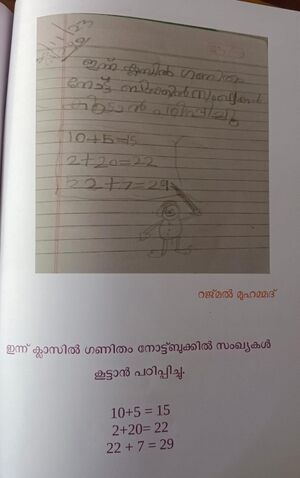 ഇന്ന് ക്ലാസിൽ ഗണിതം
നോട്ട്
കൂട്ടാൻ പഠിപ്പിച്ചു
10+5=15
2+20=22
22+7=29
റജ്മൽ മുഹമ്മദ്
ഇന്ന് ക്ലാസിൽ ഗണിതം നോട്ട്ബുക്കിൽ സംഖ്യകൾ
കൂട്ടാൻ പഠിപ്പിച്ചു.
10+5 = 15
2+20= 22
22 + 7 = 29